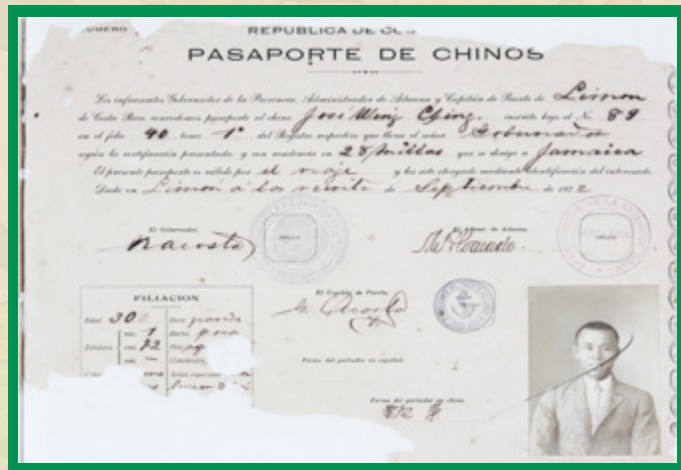 NUMERO
REPUBLICA DE COS
PASAPORTE DE CHINOS
Los infrascritos Gobernador de la Provincia, Administrador de Aduana y Capitán de Puerto de Limon
de Costa Rica, concedemos pasaporte al chino José Wing Ching, inscrito bajo el No. 89
en el folio 40, tomo 1º, del Registro respectivo que lleva el señor Gobernador
según la certificación presentada, y con residencia en 28 Millas que se dirige a Jamaica
El presente pasaporte es válido por el viaje y ha sido otorgado mediante identificación del interesado.
Dado en Limón a los veinte de Septiembre de 192
El Gobernador,
El Admor. de Aduana,
SELLO
El Capitán de Puerto,
FILIACION
Edad 30
Boca grande
mts. 1
Barba poca
Estatura cms. 72
Pelo
Señas especiales
Firma del portador en español,
Firma del portador en chino,